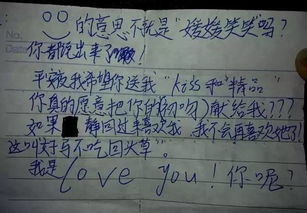 No.
Date
的意思不就是“嫒嫒笑笑”吗?
你都说出来了嘞!
平安夜我希望你送我“kiss和精品”
你真的愿意把你的初吻)献给我???
如果 静回过来喜欢我,我不会再喜欢她了!
这叫好马不吃回头草”。
我是love you!你呢?